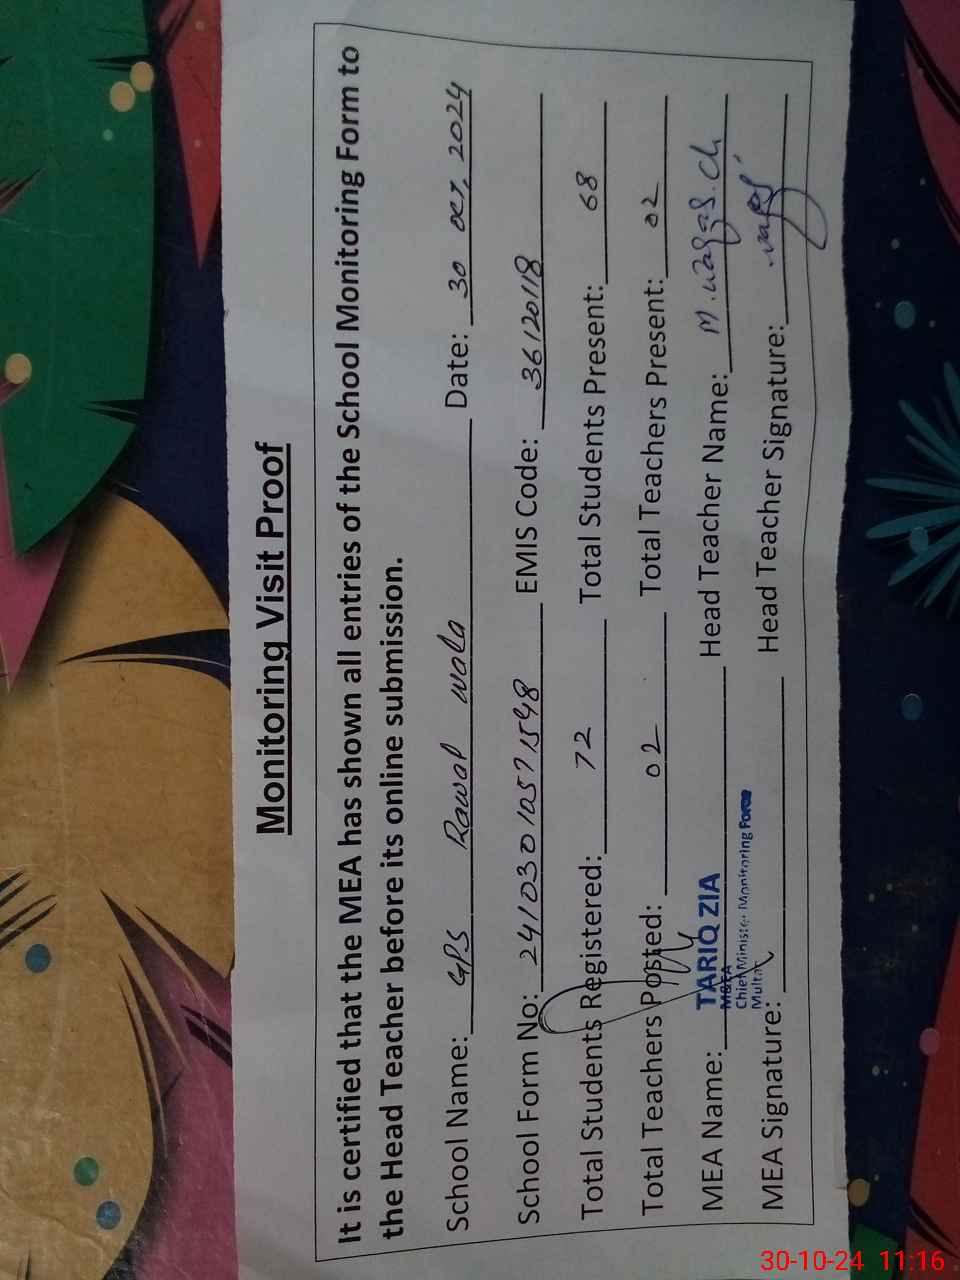 Monitoring Visit Proof
It is certified that the MEA has shown all entries of the School Monitoring Form to
the Head Teacher before its online submission.
School Name: GPS Rawal wala Date: 30 Oct, 2024
School Form No: 24103010571548 EMIS Code: 36120118
Total Students Registered: 72 Total Students Present: 68
Total Teachers Posted: 02 Total Teachers Present: 02
MEA Name: TARIQ ZIA Head Teacher Name: M.
M&EA
Chief Minister Monitoring Force
Multan
MEA Signature: Head Teacher Signature:
30-10-24 11:16